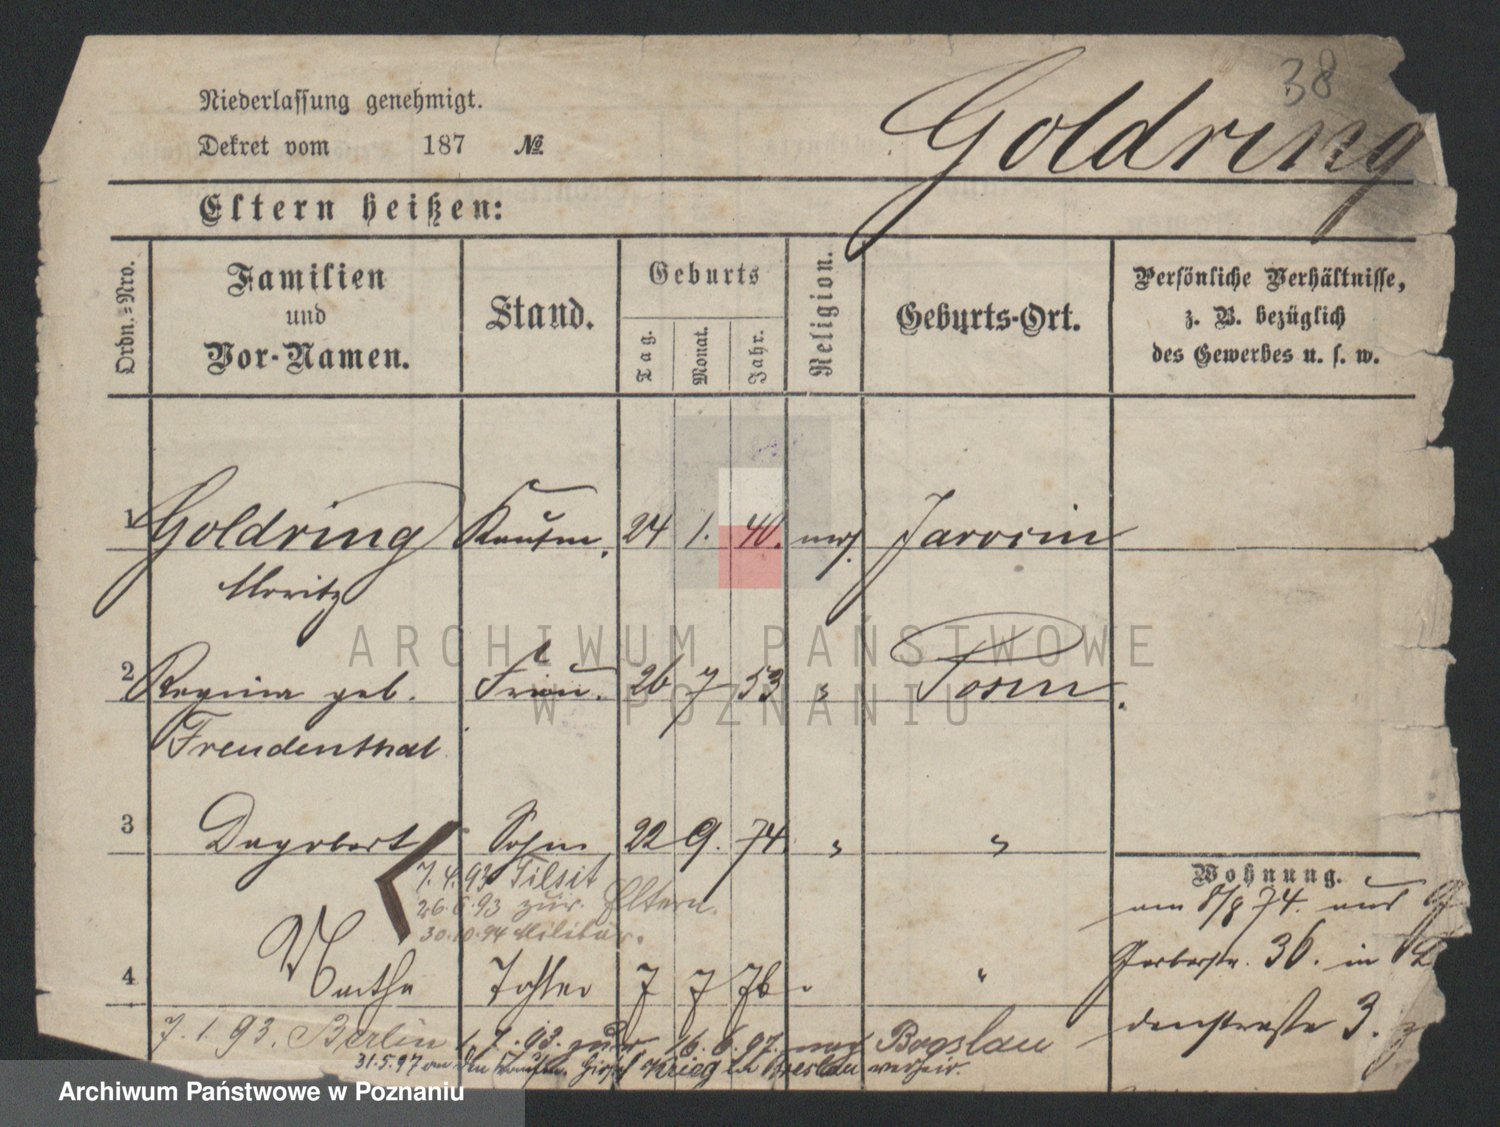 38
Goldring
Niederlassung genehmigt.
Dekret vom 187 №
Eltern heißen:
Ordn.-Nro.
Familien und Vor-Namen.
Stand.
Geburts
Tag. Monat. Jahr.
Religion.
Geburts-Ort.
Persönliche Verhältnisse,
z. B. bezüglich
des Gewerbes u. s. w.
1 Goldring Kaufm. 24 1. 40. mos. Jarocin
Moritz
2 Regina geb. Frau. 26 7 53 " Posen.
Freudenthal
3 Dagobert Sohn 22 9. 74. " "
7.4.93 Tilsit
26.6.93 zur. Eltern.
30.10.94 Militär.
4 Martha Tochter 7 7 76 "
7.1.93. Berlin 7.93. zur 16.6.97. nach Breslau
31.5.97 an den Kaufm. Krieg in Breslau verheir.
Wohnung.
am 8/8 74. aus
Gerberstr. 36. in
denstraße 3.
ARCHIWUM PAŃSTWOWE
W POZNANIU
Archiwum Państwowe w Poznaniu